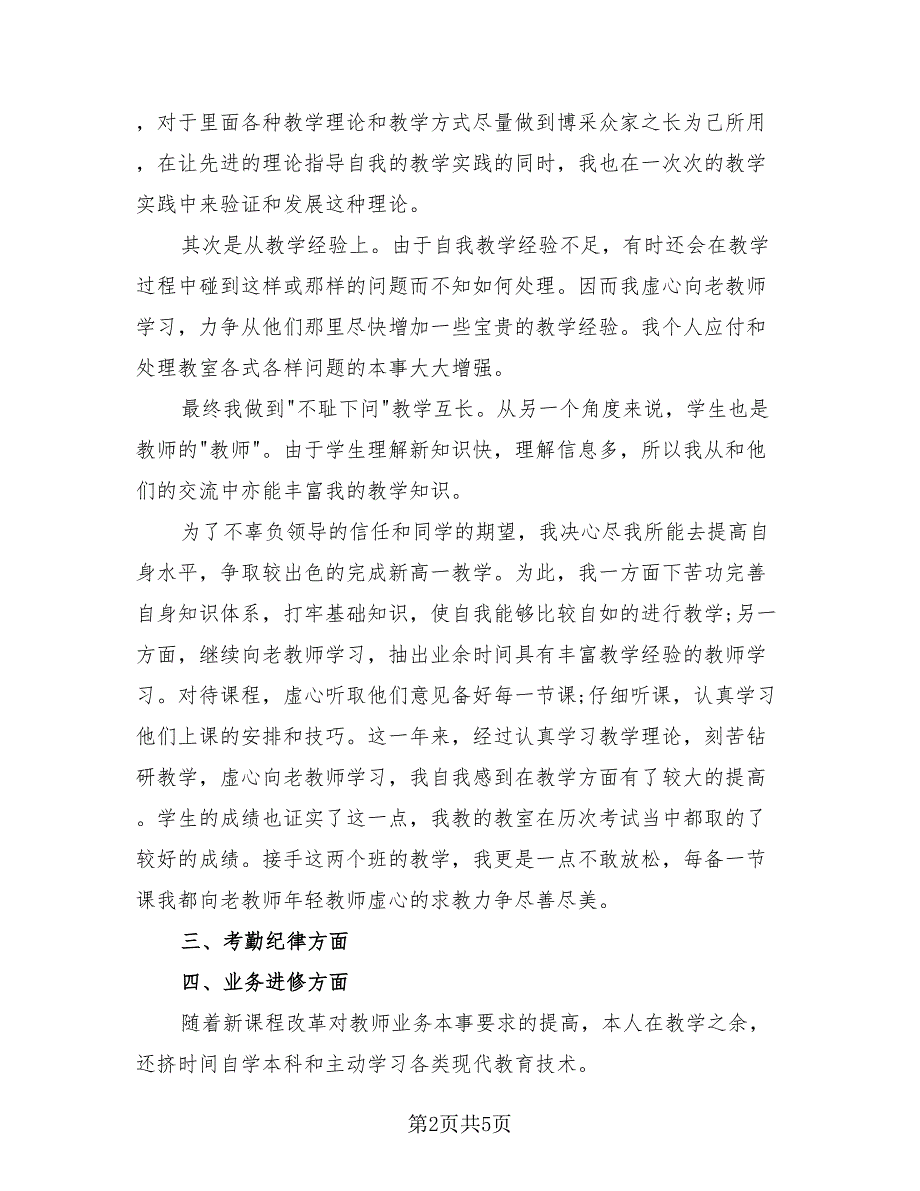 ，对于里面各种教学理论和教学方式尽量做到博采众家之长为己所用
，在让先进的理论指导自我的教学实践的同时，我也在一次次的教学
实践中来验证和发展这种理论。
其次是从教学经验上。由于自我教学经验不足，有时还会在教学
过程中碰到这样或那样的问题而不知如何处理。因而我虚心向老教师
学习，力争从他们那里尽快增加一些宝贵的教学经验。我个人应付和
处理教室各式各样问题的本事大大增强。
最终我做到"不耻下问"教学互长。从另一个角度来说，学生也是
教师的"教师"。由于学生理解新知识快，理解信息多，所以我从和他
们的交流中亦能丰富我的教学知识。
为了不辜负领导的信任和同学的期望，我决心尽我所能去提高自
身水平，争取较出色的完成新高一教学。为此，我一方面下苦功完善
自身知识体系，打牢基础知识，使自我能够比较自如的进行教学;另一
方面，继续向老教师学习，抽出业余时间具有丰富教学经验的教师学
习。对待课程，虚心听取他们意见备好每一节课;仔细听课，认真学习
他们上课的安排和技巧。这一年来，经过认真学习教学理论，刻苦钻
研教学，虚心向老教师学习，我自我感到在教学方面有了较大的提高
。学生的成绩也证实了这一点，我教的教室在历次考试当中都取的了
较好的成绩。接手这两个班的教学，我更是一点不敢放松，每备一节
课我都向老教师年轻教师虚心的求教力争尽善尽美。
三、考勤纪律方面
四、业务进修方面
随着新课程改革对教师业务本事要求的提高，本人在教学之余，
还挤时间自学本科和主动学习各类现代教育技术。
第2页共5页